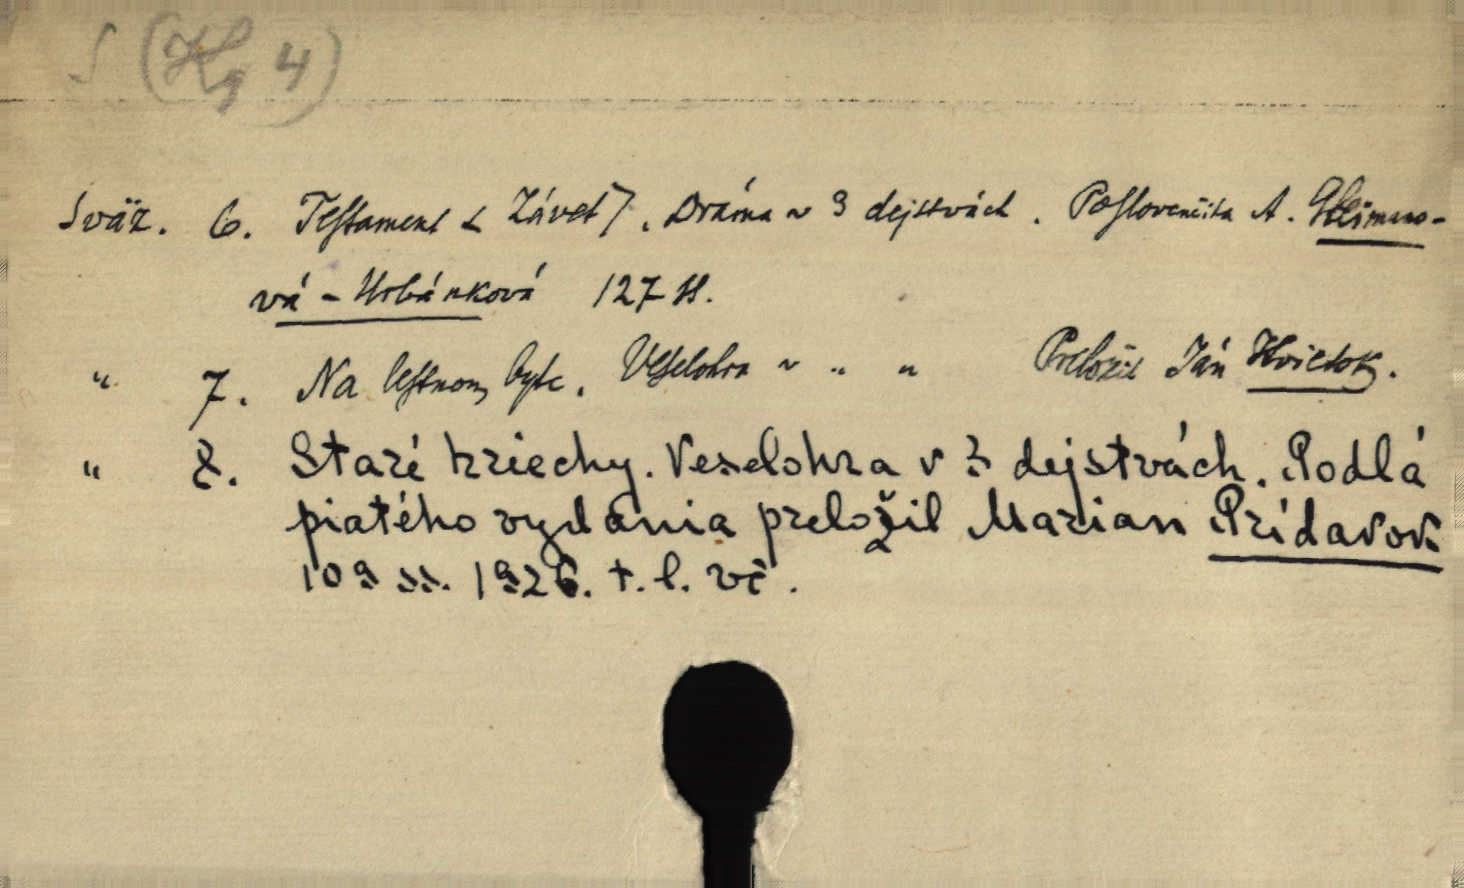 S (Hg 4)
Sväz. 6. Testament (Závet). Dráma v 3 dejstvách. Poslovenčila A.
vá-Urbánková 127 ss.
" 7. Na lestnom byte. Veselohra v " " Preložil Ján Hvietok.
" 8. Staré hriechy. Veselohra v 3 dejstvách. Podlá
piatého vydania preložil Marian Prídavok
109 ss. 1926. t. l. vč.